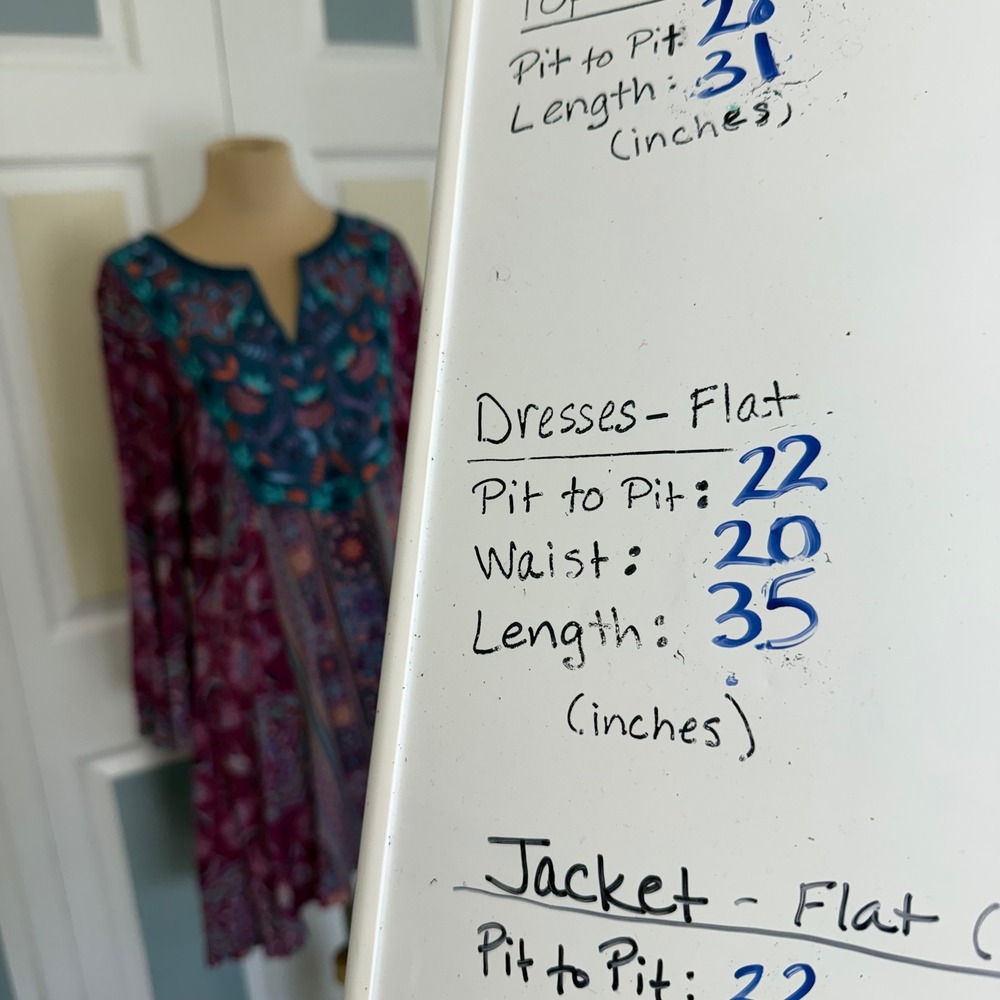 Pit to Pit: 
Length: 31
(inches)
Dresses - Flat
Pit to Pit: 22
Waist: 20
Length: 35
(inches)
Jacket - Flat (
Pit to Pit: 22